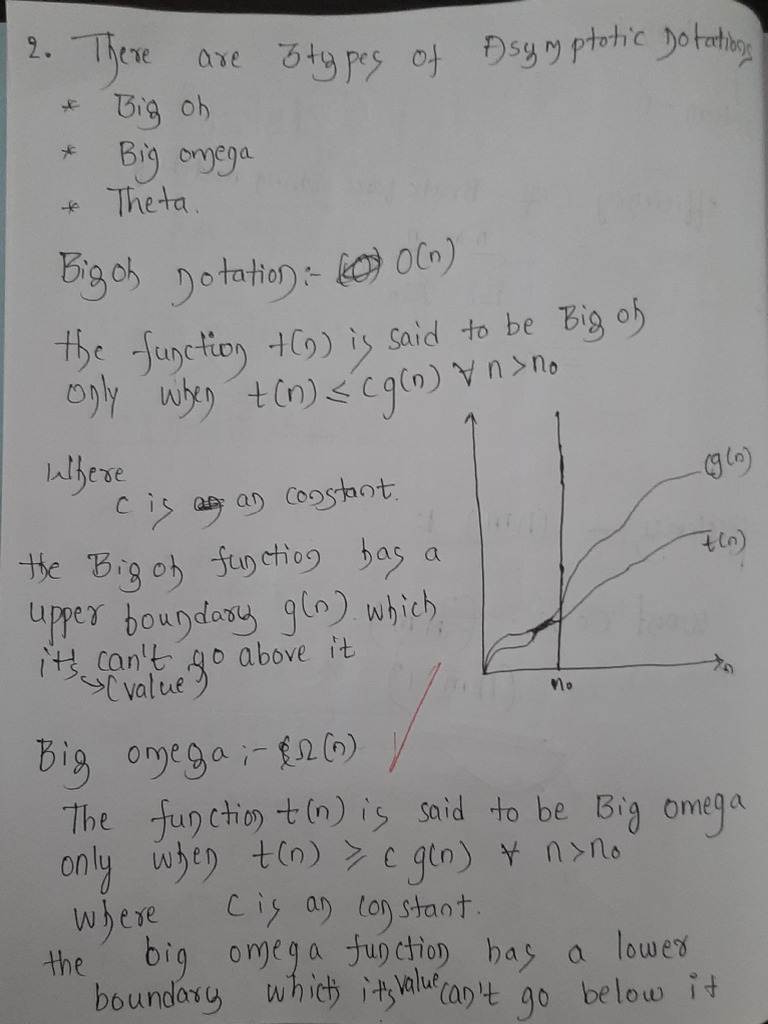 2. There are 3types of Asymptotic Notations
* Big oh
* Big omega
* Theta.
Big oh Notation:- O(n)
the function t(n) is said to be Big oh
only when t(n) ≤ cg(n) ∀ n>n₀
Where
c is an constant.
the Big oh function has a
upper boundary g(n) which
it's can't go above it
→(value)
cg(n)
t(n)
n
n₀
Big omega :- Ω(n)
The function t(n) is said to be Big omega
only when t(n) ≥ c g(n) ∀ n>n₀
where c is an constant.
the big omega function has a lower
boundary which it's value can't go below it